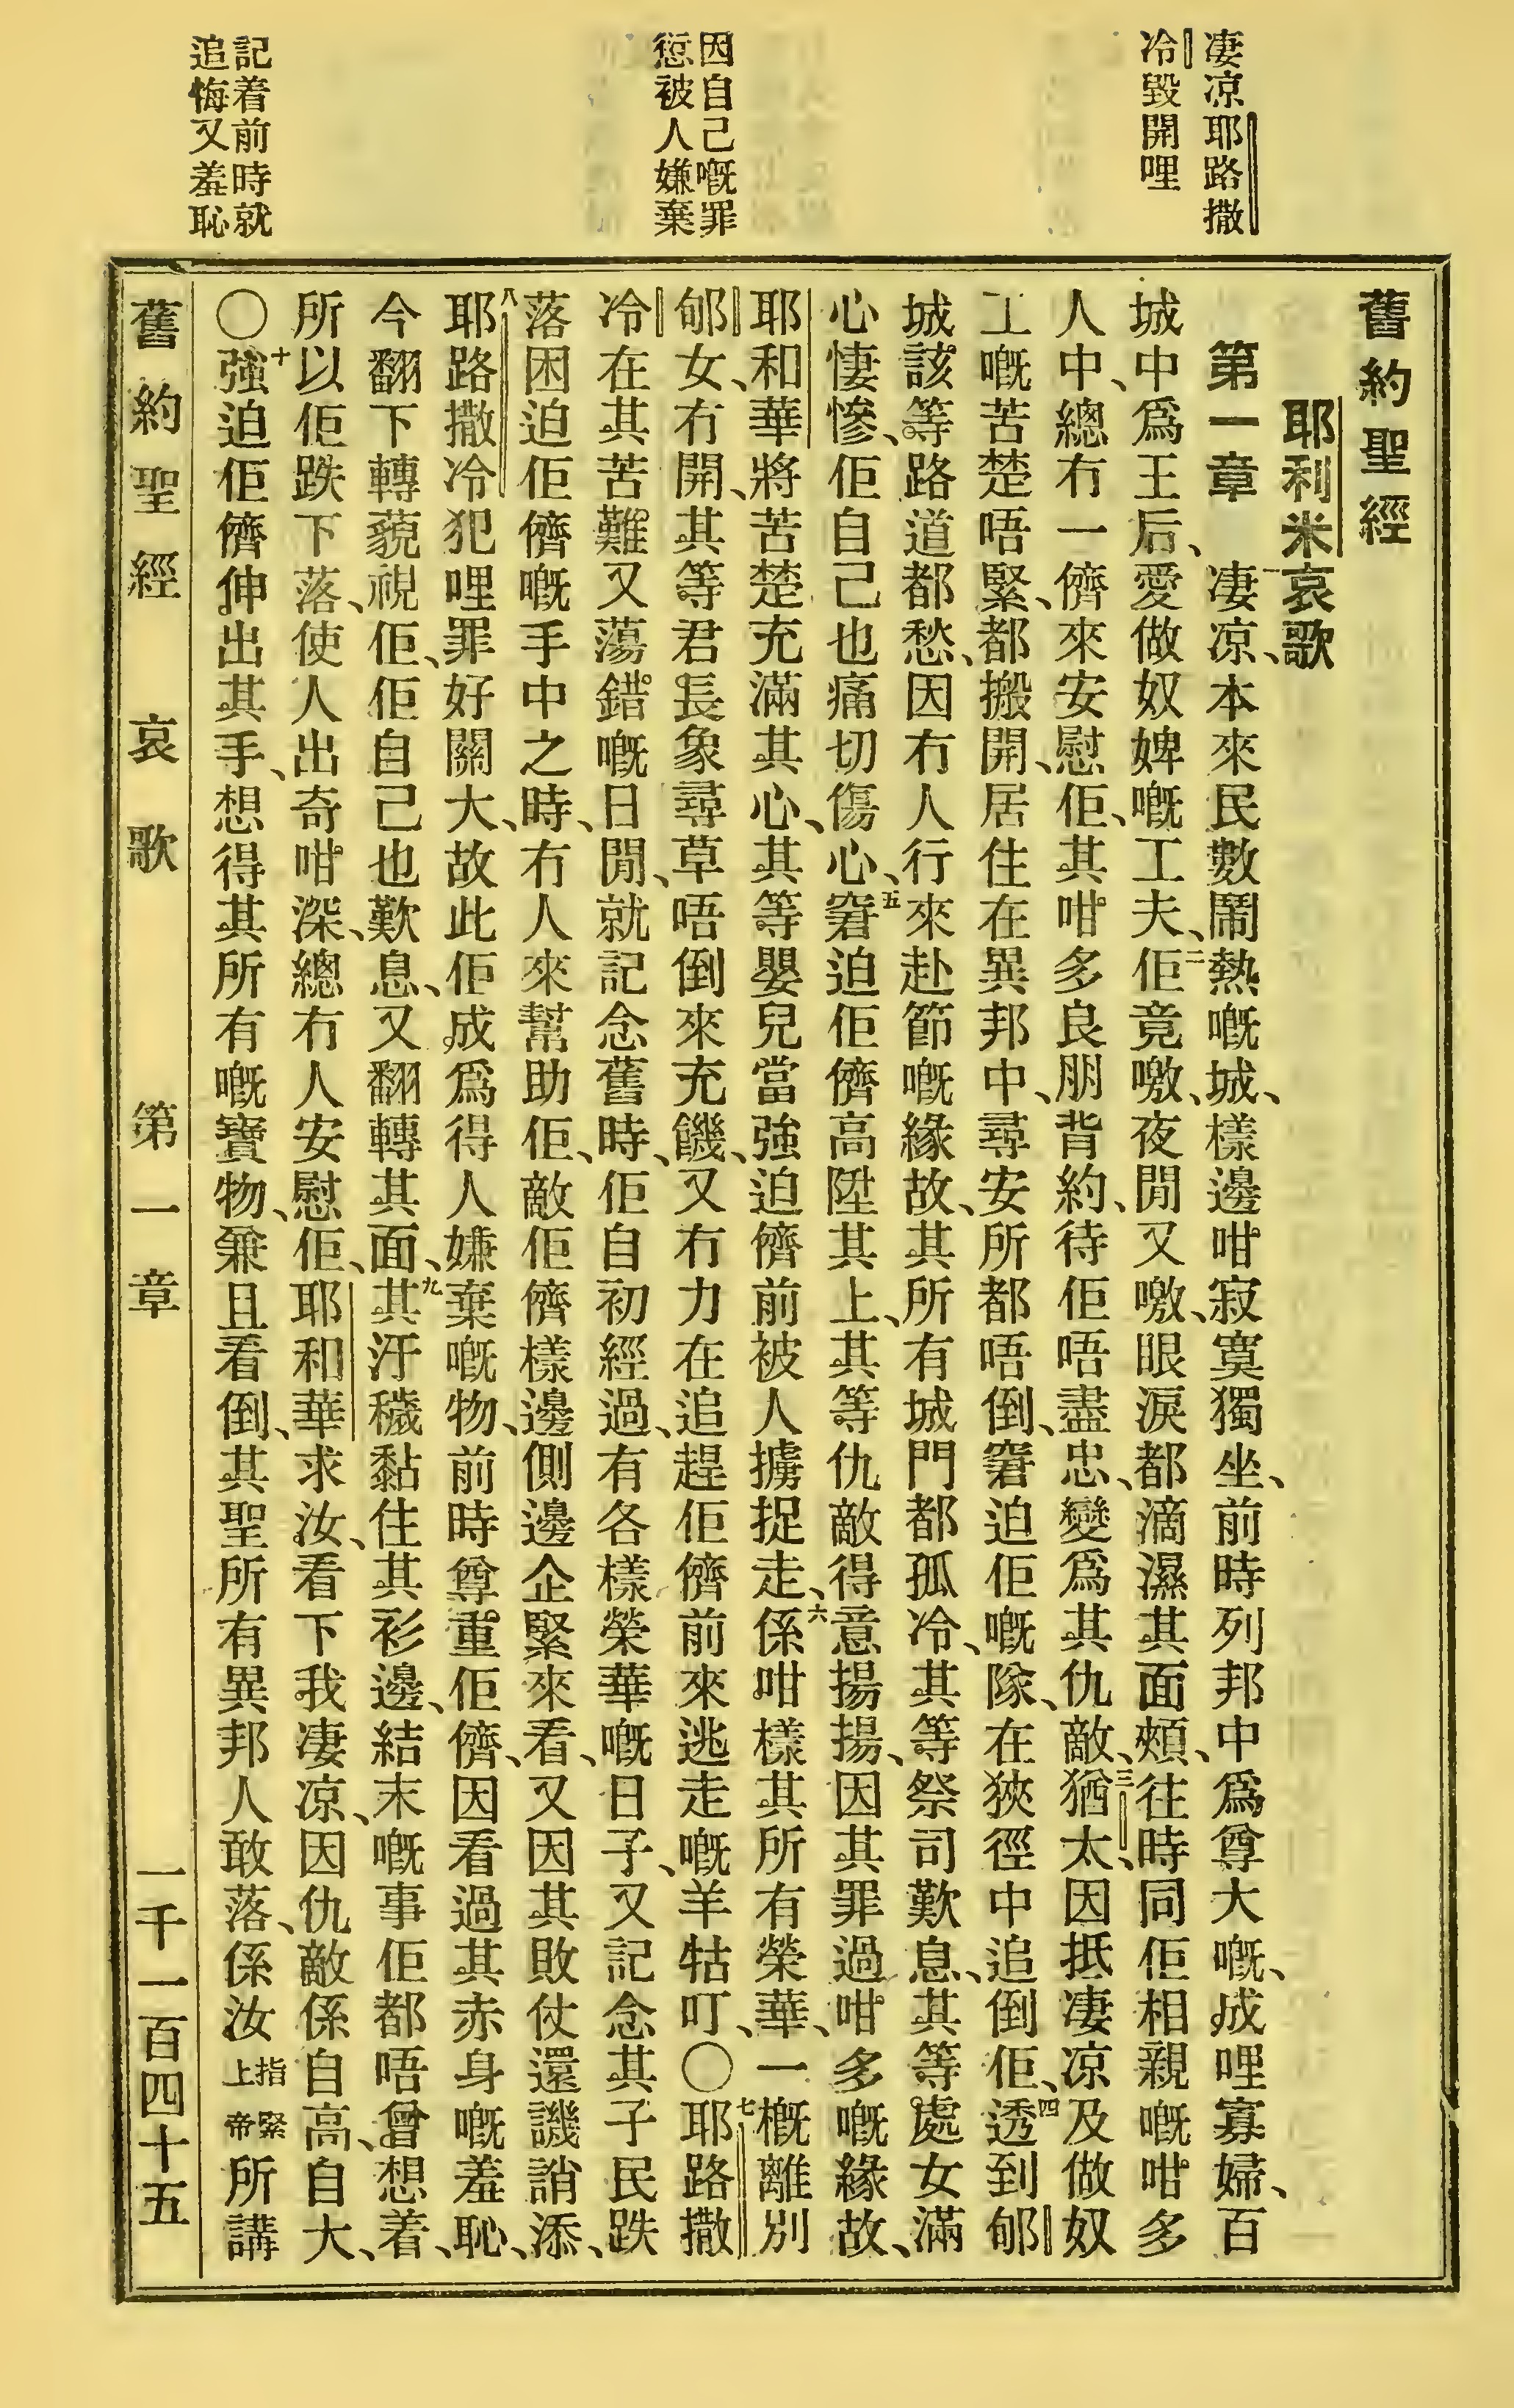 凄凉耶路撒
冷毀開哩
因自己嘅罪
愆被人嫌棄
記着前時就
追悔又羞恥
舊約聖經
耶利米哀歌
第一章　一凄凉、本來民數鬧熱嘅城、樣邊咁寂寞獨坐、前時列邦中爲尊大嘅、成哩寡婦、百
城中爲王后、愛做奴婢嘅工夫、二佢竟噭、夜閒又噭、眼淚都滴濕其面頰、往時同佢相親嘅咁多
人中、總冇一儕來安慰佢、其咁多良朋背約、待佢唔盡忠、變爲其仇敵、三猶太、因抵凄凉及做奴
工嘅苦楚唔緊、都搬開、居住在異邦中、尋安所都唔倒、窘迫佢嘅隊、在狹徑中追倒佢、四透到郇
城該等路道都愁、因冇人行來赴節嘅緣故、其所有城門都孤冷、其等祭司歎息、其等處女滿
心悽慘、佢自己也痛切傷心、五窘迫佢儕高陞其上、其等仇敵得意揚揚、因其罪過咁多嘅緣故、
耶和華將苦楚充滿其心、其等嬰兒當強迫儕前被人擄捉走、六係咁樣其所有榮華、一概離別
郇女、冇開、其等君長象尋草唔倒來充饑、又冇力在追趕佢儕前來逃走嘅羊牯叮、〇七耶路撒
冷在其苦難又蕩錯嘅日閒、就記念舊時、佢自初經過、有各樣榮華嘅日子、又記念其子民跌
落困迫佢儕嘅手中之時、冇人來幫助佢、敵佢儕樣邊側邊企緊來看、又因其敗仗還譏誚添、
八耶路撒冷犯哩罪好關大、故此佢成爲得人嫌棄嘅物、前時尊重佢儕、因看過其赤身嘅羞恥、
今翻下轉藐視佢、佢自己也歎息、又翻轉其面、九其汙穢黏住其衫邊、結末嘅事佢都唔曾想着、
所以佢跌下落、使人出奇咁深、總冇人安慰佢、耶和華求汝、看下我凄凉、因仇敵係自高、自大、
〇十強迫佢儕伸出其手、想得其所有嘅寶物、兼且看倒、其聖所有異邦人敢落、係汝指緊上帝所講
舊約聖經　哀歌　第一章　一千一百四十五